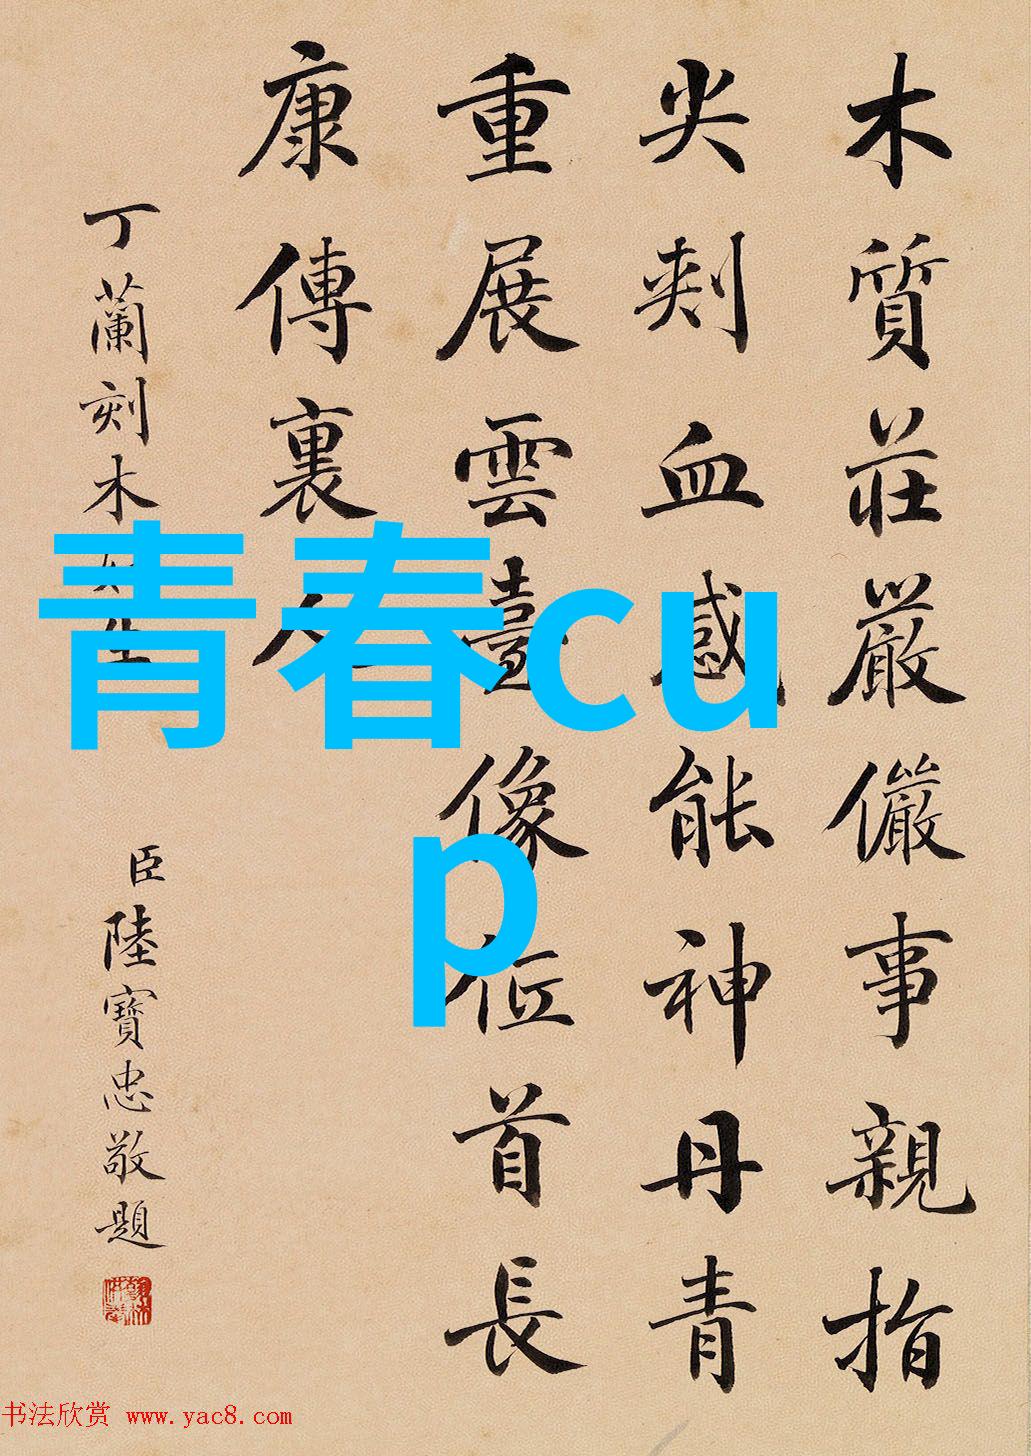 木質莊嚴儼事親指
尖刾血感能神丹青
重展雲臺像首長
康傳裏人
丁蘭刻木
臣陸寶忠敬題
青春cu
p
书法欣赏 www.yac8.com